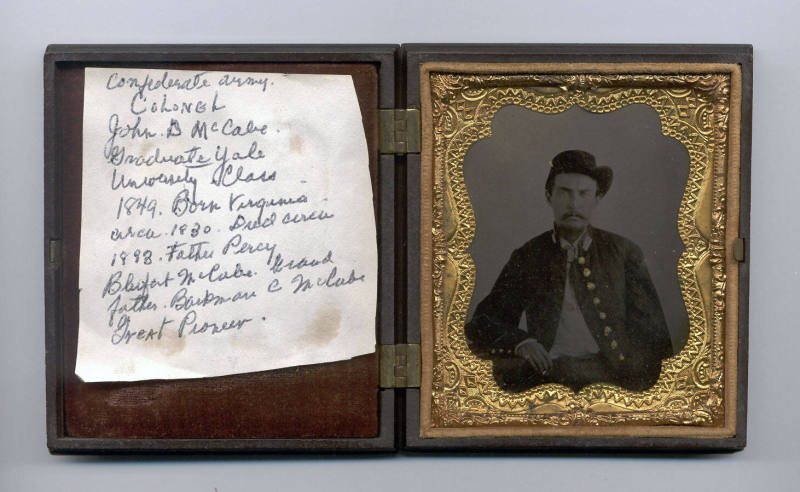 Confederate army.
COLONEL
John. B McCabe.
Graduate Yale
University Class
1849. Born Virginia
circa. 1830. Died circa
1898. Father Percy
McCabe. Grand
father. C McCabe
Great Pioneer.